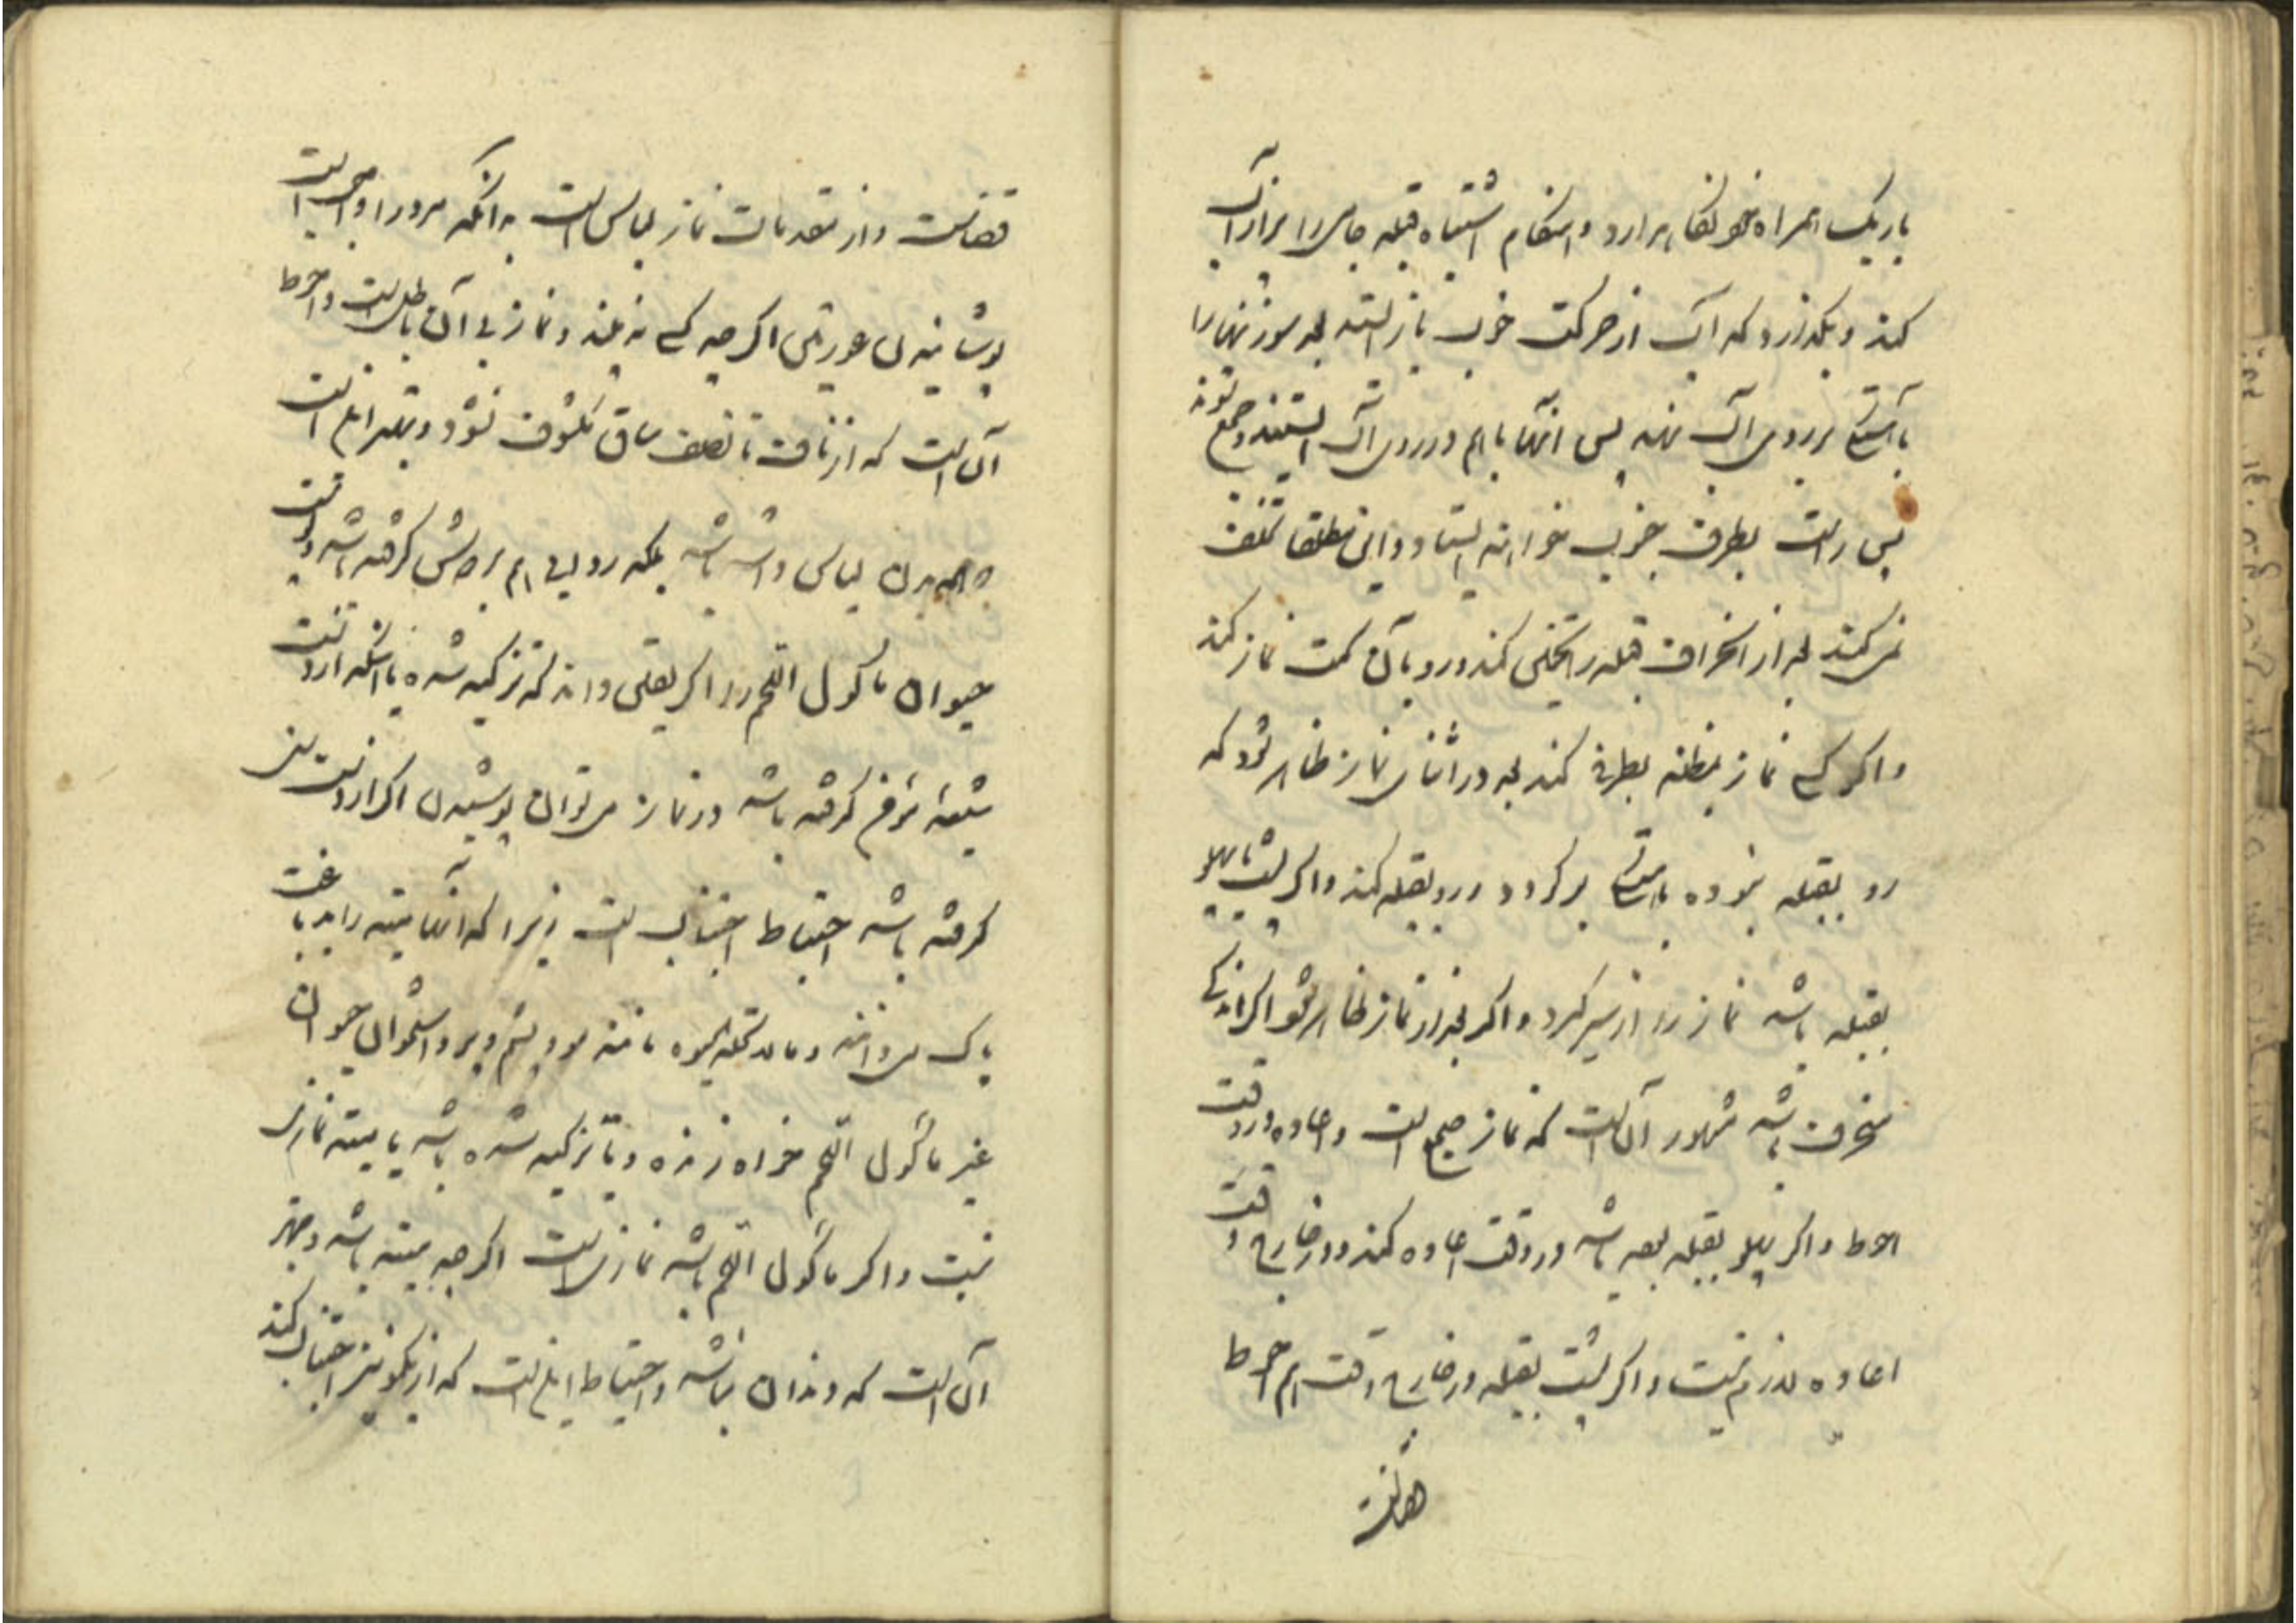 باریک همراه خود نگاه دارد و هنگام اشتباه قبله جامی را پر از آب
کند و بگذارد که آب از حرکت خوب باز ایستد بعد سوزنها را
بآهستگی بر روی آب نهد پس آنها باهم در روی آب ایستند و جمع شوند
پس راست بطرف جنوب خواهند ایستاد و این مطلقا تخلف
نمی کند بعد از انحراف قبله را تخمین کند و رو بآن سمت نماز کند
و اگر کسی نماز بمظنه بطرفی کند بعد در اثنای نماز ظاهر شود که
رو بقبله نبوده بایستی برگردد و رو بقبله کند و اگر پشت یا پهلو
بقبله باشد نماز را از سر گیرد و اگر بعد از نماز ظاهر شود اگر اندکی
منحرف باشد مشهور آن است که نماز صحیح است و اعاده در وقت
احوط و اگر پهلو بقبله بوده باشد در وقت اعاده کند و در خارج وقت
اعاده لازم نیست و اگر پشت بقبله در خارج وقت هم احوط
قضاست
قضاست و از مقدمات نماز لباس است بدانکه مرد را واجب است
پوشانیدن عورتین اگر چه کسی نه بیند و نماز بی آن باطل است و احوط
آن است که از ناف تا نصف ساق مکشوف نشود و بهتر آن است
که همه بدن لباس داشته باشد بلکه ردایی هم بر دوش گرفته باشد و پوست
حیوان ماکول اللحم را اگر یقین داند که تزکیه شده یا آنکه از دست
شیعهٔ گرفته باشد در نماز می توان پوشیدن اگر از دست سنی
گرفته باشد احتیاط اجتناب است زیرا که آنها میته را بدباغت
پاک می دانند و ما لا تحله الحیوه مانند مو و پشم و پر و استخوان حیوان
غیر ماکول اللحم خواه زنده و یا تزکیه شده باشد یا میته نمازی
نیست و اگر ماکول اللحم باشد نمازی است اگر چه میته باشد و بهتر
آن است که دندان نباشد و احتیاط این است که از یک مو نیز اجتناب کند